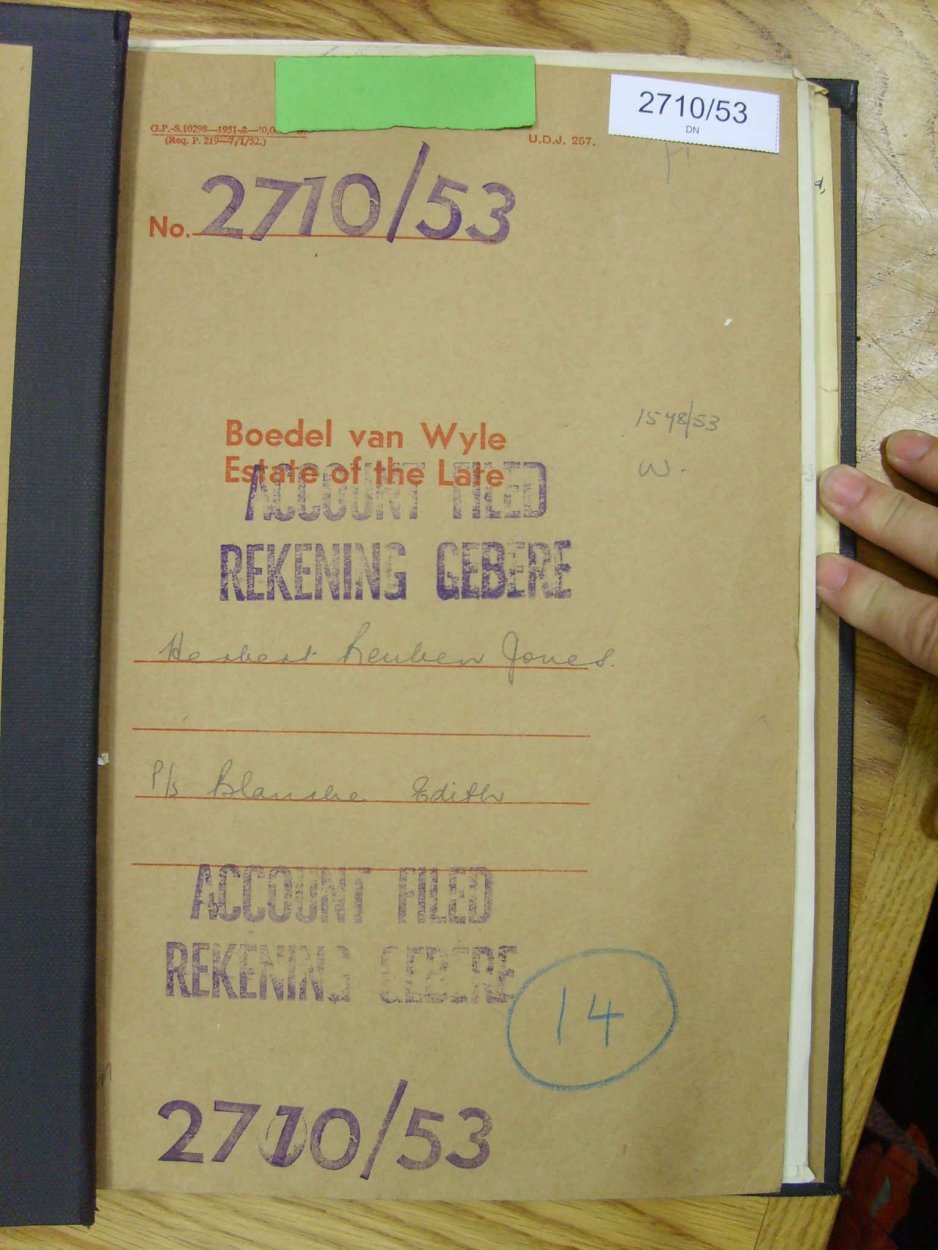 2710/53
DN
G.P.-S.10298—1951-2—
(Req. P. 219—7/1/52.)
U.D.J. 257.
No. 2710/53
1548/53
W.
Boedel van Wyle
Estate of the Late
ACCOUNT FILED
REKENING GEBERE
Herbert Reuben Jones.
P/s Blanche Edith
ACCOUNT FILED
REKENING GEBERE
14
2710/53